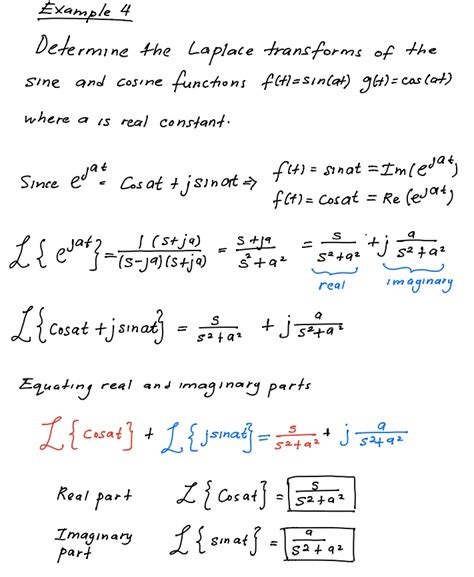 Example 4
Determine the Laplace transforms of the
sine and cosine functions f(t)=sin(at) g(t)=cos(at)
where a is real constant.
Since e^{jat} = Cosat + jsinat ⇒ f(t) = sinat = Im(e^{jat})
f(t) = cosat = Re(e^{jat})
L{e^{jat}} = 1(s+ja)/(s-ja)(s+ja) = s+ja/s²+a² = s/s²+a² + j a/s²+a²
real imaginary
L{cosat + jsinat} = s/s²+a² + j a/s²+a²
Equating real and imaginary parts
L{cosat} + L{jsinat} = s/s²+a² + j a/s²+a²
Real part L{Cosat} = s/s²+a²
Imaginary part L{sinat} = a/s²+a²